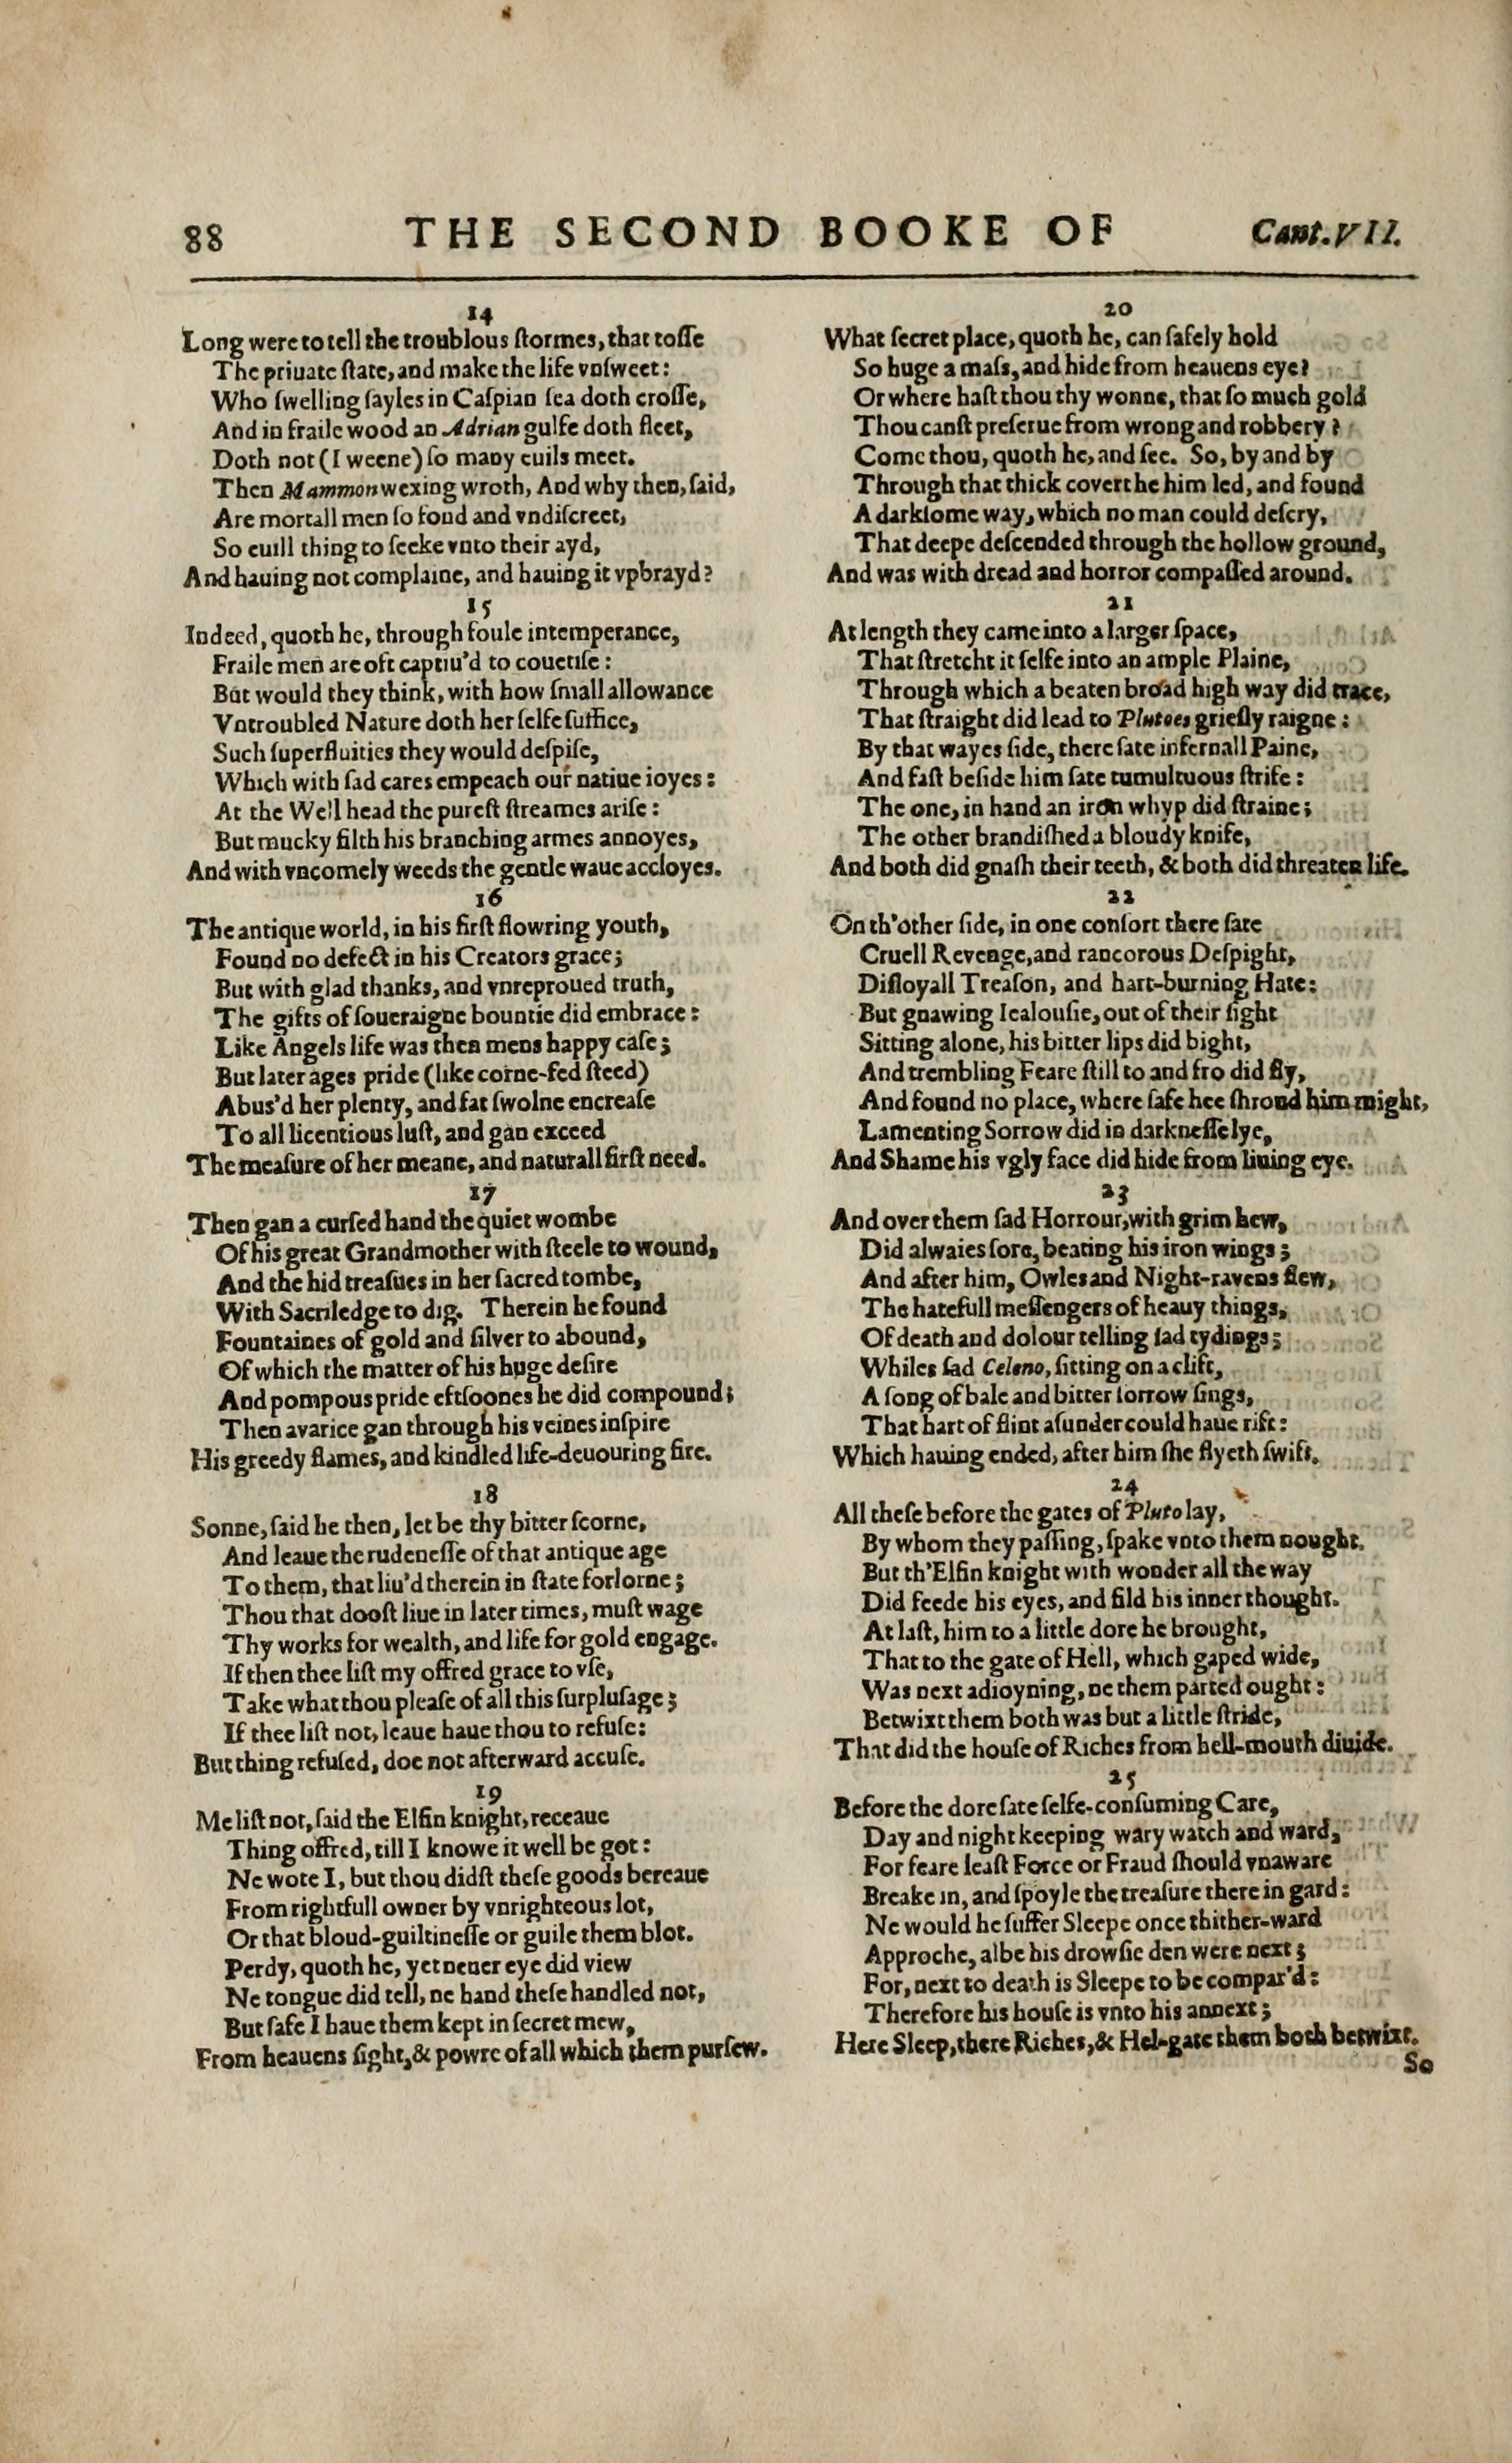 88 THE SECOND BOOKE OF Cant.VII.
14
Long were to tell the troublous ſtormes, that toſſe
The priuate ſtate, and make the life vnſweet:
Who ſwelling ſayles in Caſpian ſea doth croſſe,
And in fraile wood an Adrian gulfe doth fleet,
Doth not (I weene) ſo many euils meet.
Then Mammon wexing wroth, And why then, ſaid,
Are mortall men ſo fond and vndiſcreet,
So euill thing to ſeeke vnto their ayd,
And hauing not complaine, and hauing it vpbrayd?
15
Indeed, quoth he, through foule intemperance,
Fraile men are oft captiu'd to couetiſe:
But would they think, with how ſmall allowance
Vntroubled Nature doth her ſelfe ſuffice,
Such ſuperfluities they would deſpiſe,
Which with ſad cares empeach our natiue ioyes:
At the Well head the pureſt ſtreames ariſe:
But mucky filth his branching armes annoyes,
And with vncomely weeds the gentle waue accloyes.
16
The antique world, in his firſt flowring youth,
Found no defect in his Creators grace;
But with glad thanks, and vnreproued truth,
The gifts of ſoueraigne bountie did embrace:
Like Angels life was then mens happy caſe;
But later ages pride (like corne-fed ſteed)
Abus'd her plenty, and fat ſwolne encreaſe
To all licentious luſt, and gan exceed
The meaſure of her meane, and naturall firſt need.
17
Then gan a curſed hand the quiet wombe
Of his great Grandmother with ſteele to wound,
And the hid treaſues in her ſacred tombe,
With Sacriledge to dig. Therein he found
Fountaines of gold and ſilver to abound,
Of which the matter of his huge deſire
And pompous pride eftſoones he did compound;
Then avarice gan through his veines inſpire
His greedy flames, and kindled life-deuouring fire.
18
Sonne, ſaid he then, let be thy bitter ſcorne,
And leaue the rudeneſſe of that antique age
To them, that liu'd therein in ſtate forlorne;
Thou that dooſt liue in later times, muſt wage
Thy works for wealth, and life for gold engage.
If then thee liſt my offred grace to vſe,
Take what thou pleaſe of all this ſurpluſage;
If thee liſt not, leaue haue thou to refuſe:
But thing refuſed, doe not afterward accuſe.
19
Me liſt not, ſaid the Elfin knight, receaue
Thing offred, till I knowe it well be got:
Ne wote I, but thou didſt theſe goods bereaue
From rightfull owner by vnrighteous lot,
Or that bloud-guiltineſſe or guile them blot.
Perdy, quoth he, yet neuer eye did view
Ne tongue did tell, ne hand theſe handled not,
But ſafe I haue them kept in ſecret mew,
From heauens ſight, & powre of all which them purſew.
20
What ſecret place, quoth he, can ſafely hold
So huge a maſs, and hide from heauens eye?
Or where haſt thou thy wonne, that ſo much gold
Thou canſt preſerue from wrong and robbery?
Come thou, quoth he, and ſee. So, by and by
Through that thick covert he him led, and found
A darkſome way, which no man could deſcry,
That deepe deſcended through the hollow ground,
And was with dread and horror compaſſed around.
21
At length they came into a larger ſpace,
That ſtretcht it ſelfe into an ample Plaine,
Through which a beaten broad high way did trace,
That ſtraight did lead to Plutoes grieſly raigne:
By that wayes ſide, there ſate infernall Paine,
And faſt beſide him ſate tumultuous ſtrife:
The one, in hand an iron whyp did ſtraine;
The other brandiſhed a bloudy knife,
And both did gnaſh their teeth, & both did threaten life.
22
On th'other ſide, in one conſort there ſate
Cruell Revenge, and rancorous Deſpight,
Diſloyall Treaſon, and hart-burning Hate:
But gnawing Iealouſie, out of their ſight
Sitting alone, his bitter lips did bight,
And trembling Feare ſtill to and fro did fly,
And found no place, where ſafe hee ſhroud him might,
Lamenting Sorrow did in darkneſſe lye,
And Shame his vgly face did hide from liuing eye.
23
And over them ſad Horrour, with grim hew,
Did alwaies ſore, beating his iron wings;
And after him, Owles and Night-ravens flew,
The hatefull meſſengers of heauy things,
Of death and dolour telling ſad tydings;
Whiles ſad Celeno, ſitting on a clift,
A ſong of bale and bitter ſorrow ſings,
That hart of flint aſunder could haue rift:
Which hauing ended, after him ſhe flyeth ſwift.
24
All theſe before the gates of Pluto lay,
By whom they paſſing, ſpake vnto them nought.
But th'Elfin knight with wonder all the way
Did feede his eyes, and fild his inner thought.
At laſt, him to a little dore he brought,
That to the gate of Hell, which gaped wide,
Was next adioyning, ne them parted ought:
Betwixt them both was but a little ſtride,
That did the houſe of Riches from hell-mouth diuide.
25
Before the dore ſate ſelfe-conſuming Care,
Day and night keeping wary watch and ward,
For feare leaſt Force or Fraud ſhould vnaware
Breake in, and ſpoyle the treaſure there in gard:
Ne would he ſuffer Sleepe once thither-ward
Approche, albe his drowſie den were next;
For, next to death is Sleepe to be compar'd:
Therefore his houſe is vnto his annext;
Here Sleep, there Riches, & Hel-gate them both betwixt.
So